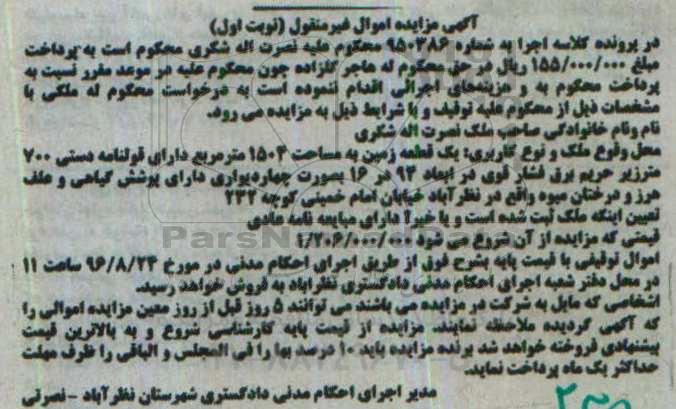 آگهی مزایده اموال غیرمنقول (نوبت اول)
در پرونده کلاسه اجرا به شماره ۹۵۰۳۸۶ محکوم علیه نصرت اله شکری محکوم است به پرداخت
مبلغ ۱۵۵/۰۰۰/۰۰۰ ریال در حق محکوم له هاجر گلزاده چون محکوم علیه در موعد مقرر نسبت به
پرداخت محکوم به و هزینه‌های اجرائی اقدام ننموده است به درخواست محکوم له ملکی با
مشخصات ذیل از محکوم علیه توقیف و با شرایط ذیل به مزایده می رود.
نام ونام خانوادگی صاحب ملک نصرت اله شکری
محل وقوع ملک و نوع کاربری: یک قطعه زمین به مساحت ۱۵۰۴ مترمربع دارای قولنامه دستی ۷۰۰
مترزیر حریم برق فشار قوی در ابعاد ۹۴ در ۱۶ بصورت چهاردیواری دارای پوشش گیاهی و علف
هرز و درختان میوه واقع در نظرآباد خیابان امام خمینی کوچه ۲۳۲
تعیین اینکه ملک ثبت شده است و یا خیر؟ دارای مبایعه نامه عادی
قیمتی که مزایده از آن شروع می شود:
اموال توقیفی با قیمت پایه بشرح فوق از طریق اجرای احکام مدنی در مورخ ۹۶/۸/۲۳ ساعت ۱۱
در محل دفتر شعبه اجرای احکام مدنی دادگستری نظرآباد به فروش خواهد رسید.
اشخاصی که مایل به شرکت در مزایده می باشند می توانند ۵ روز قبل از روز معین مزایده اموالی را
که آگهی گردیده ملاحظه نمایند. مزایده از قیمت پایه کارشناسی شروع و به بالاترین قیمت
پیشنهادی فروخته خواهد شد برنده مزایده باید ۱۰ درصد بها را فی المجلس و الباقی را ظرف مهلت
حداکثر یک ماه پرداخت نماید.
مدیر اجرای احکام مدنی دادگستری شهرستان نظرآباد -نصرتی